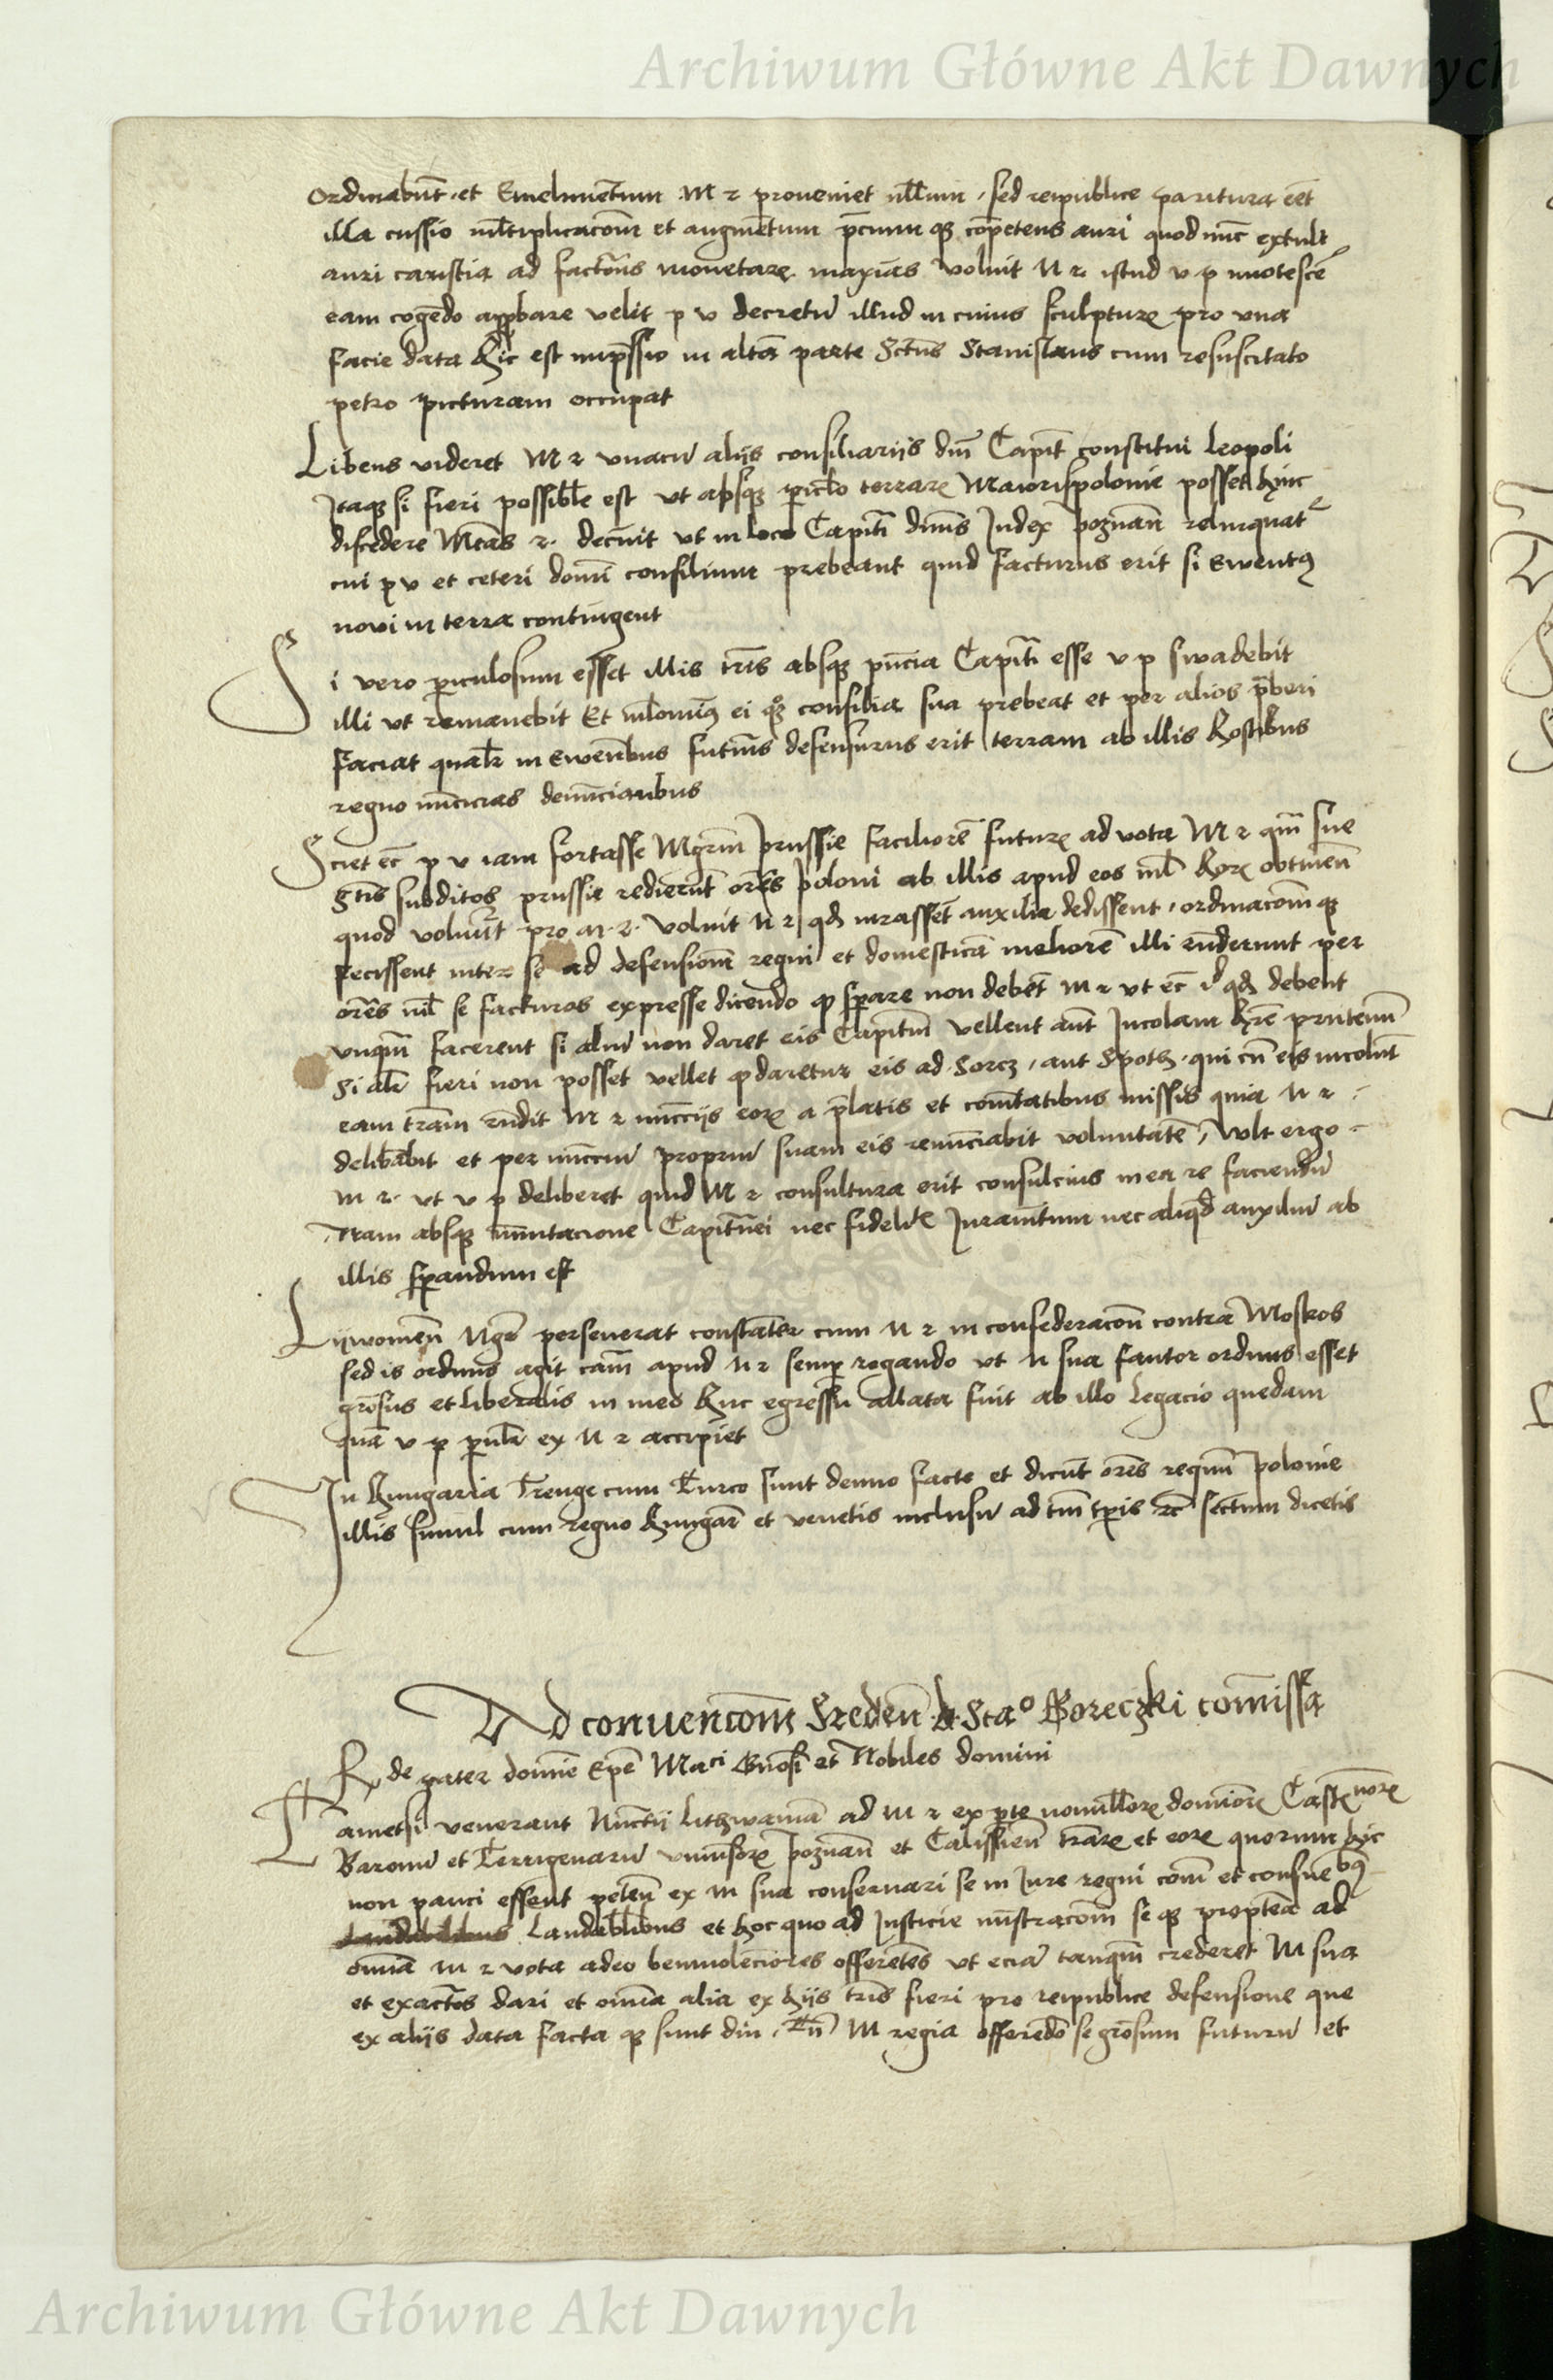 Archiwum Główne Akt Dawnych
Ordinabūt et Emelumētum M r proveniet nllum, sed reipublice paritura eēt
illa cussio mltiplicacōm et augmētum pcium qz cōpetens auri quod nūc extulit
auri caristia ad factoris monetarz maximas voluit M r istud v p innotesce
eam cogēdo approbare velit p v decretū illud in cuius sculpturz pro una
facie data hic est impssio in altā parte Sctus Stanislaus cum resuscitato
petro picturam occupat
Libens videret M r unacū aliis consiliariis dm Capit constitui Leopoli
Itaqz si fieri possible est ut absqz piclo terrarz Maiorispolonie posset hinc
discedere Mtas r. decrnit ut in loco Capiti dnus Judex poznan relinquat
cui p v et ceteri domi consilium prebeant quid facturus erit si Ewentq
novi in terra contingent
Si vero piculosum esset illis tris absqz pncia Capiti esse v p swadebit
illi ut remanebit Et nlominq ei qqz consilia sua prebeat et per alios pberi
faciat qualr in Ewentibus futuris defensurus erit terram ab illis hostibus
regno denuncianbus
Sciet ec p v iam fortasse Mgrm prussie faciliore futurz ad vota M r qm sue
gtis subditos prussie redierūt ores poloni ab illis apud eos nil horz obtinen
quod voluit pro M r. voluit M r qd iurasset auxilia dedissent, ordinacōm qz
fecissent inter se ad defensionem regni et domesticā meliorē illi rnderunt per
ores nil se facturos expresse dicendo qz sperare non debet M r ut ec id qd debent
unqm facerent si aliū non daret eis Capitm vellent aut Incolam hre prutenum
Si alr fieri non posset vellet qz daretur eis ad Sorcz, aut Spoth. qui cū eis incolūt
eam tram rndit M r nuncciis eorz a platis et comitatibus missis quia M r
deliberabit et per nunccium propriū suam eis renunciabit voluntatē, Vult ergo
M r. ut v p deliberet quid M r consultura erit consulcius in ea re faciendū
Nam absqz mutacione Capitanei nec fidelitatis Juramentum nec aliqd auxiliū ab
illis sperandum est
Liiwonien Mgr perseverat constāter cum M r in confederacōn contra Moskos
sed is ordinis agit cam apud M r semp rogando ut M sua fautor ordinis esset
grosus et liberalis in meo huc egressu allata fuit ab illo legacio quedam
quā v p ex M r accipiet
In Hungaria Trenge cum Turco sunt denuo facte et dicūt ores regnum polonie
illis simul cum regno hungarie et venetis inclusū ad tm tpis rc sectum dicetis
Ad convencōm Sredeń Stao Goreczki comissa
Rxde pater domine Epe Maci Gnosi et Nobiles domini
Tametsi venerant Nuncii Lithwaniā ad M r ex pte nonullorz dominorz Castrnorz
Baronū et Terrigenarū universorz poznan et Calissien trarz et eorz quorum hic
non pauci essent peten ex M sua conservari se in Jure regni com et consuebq
Laudablibus et hoc quo ad Justicie mnistracōm se qz proptea ad
omnia M r vota adeo benivolenciores offerētes ut eciā tanqm crederet M sua
et exactes dari et omnia alia ex hiis tris fieri pro reipublice defensione que
ex aliis data facta qz sunt diu. Tn M regia offerēdo se grosum futurū et
Archiwum Główne Akt Dawnych